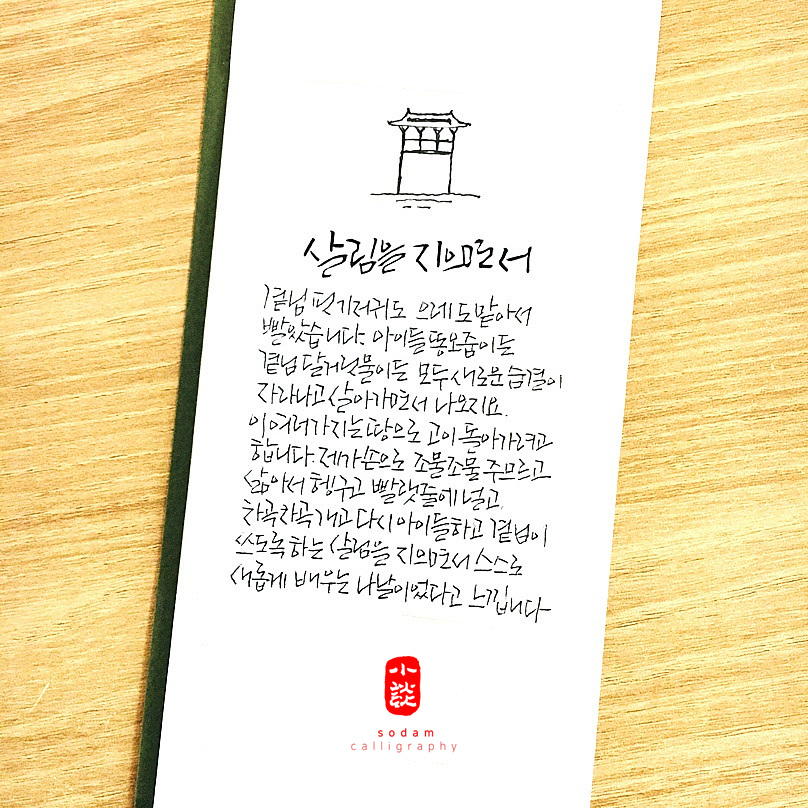 살림을 지으면서
곁님 핏기저귀도 으레 도맡아서
빨았습니다. 아이들 똥오줌이든
곁님 달거릿물이든 모두 새로운 숨결이
자라나고 살아가면서 나오지요.
이 여러가지는 땅으로 고이 돌아가려고
합니다. 제가 손으로 조물조물 주므르고
삶아서 헹구고 빨랫줄에 널고,
차곡차곡 개고 다시 아이들하고 곁님이
쓰도록 하는 살림을 지으면서 스스로
새롭게 배우는 나날이었다고 느낍니다
小談
sodam
calligraphy